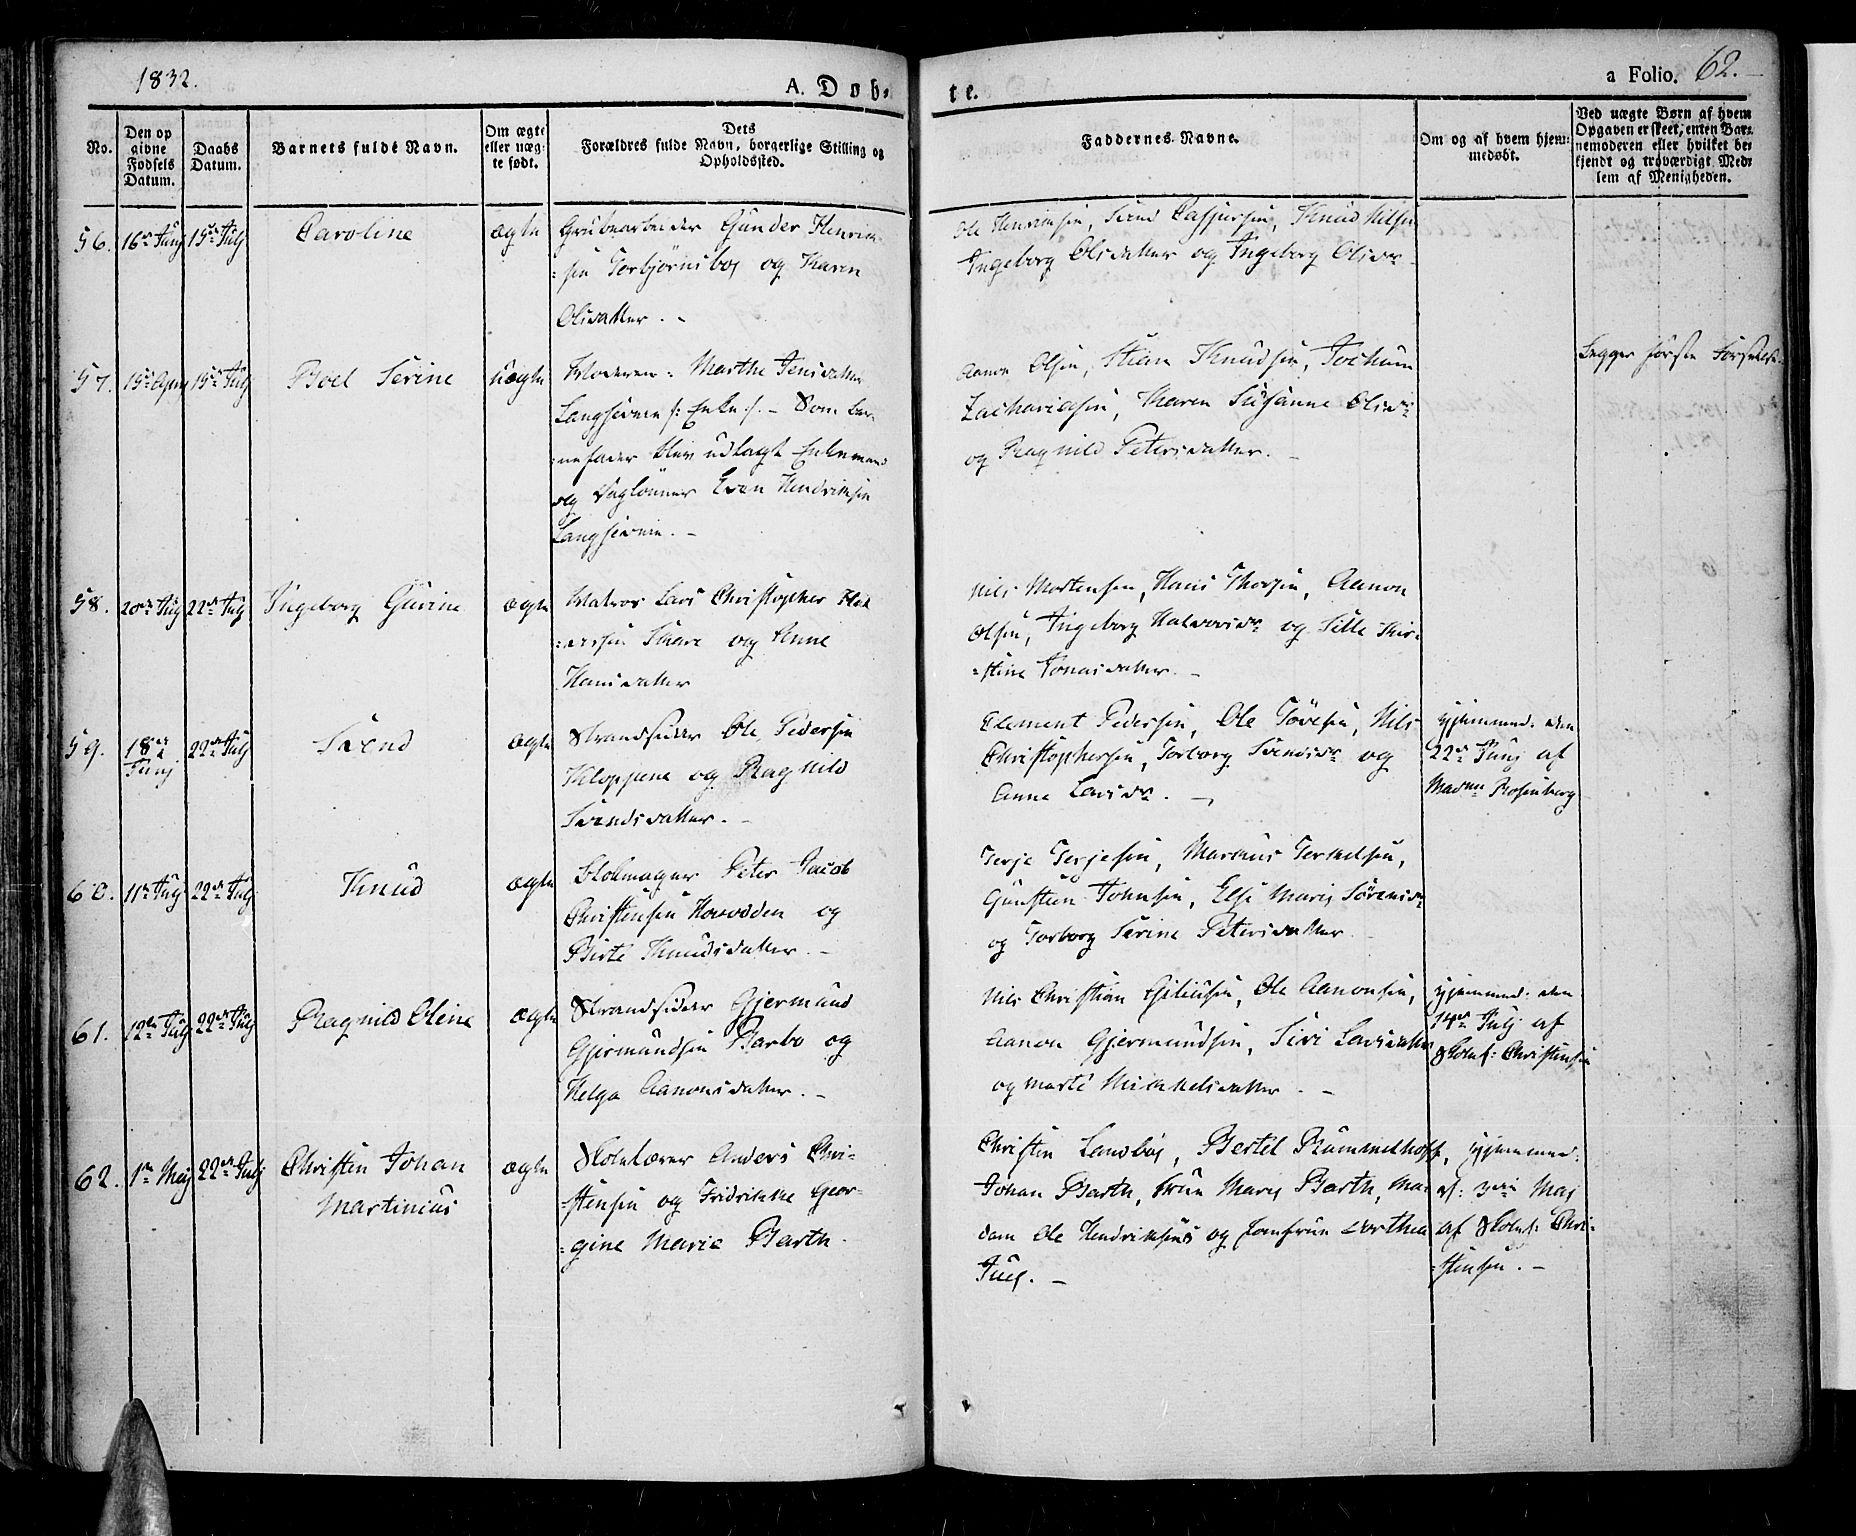 1832.
A. Døb-
te.
a Folio. 62.
No.
Den op
givne
Fødsels
Datum.
Daabs
Datum.
Barnets fulde Navn.
Om ægte
eller uæg-
te født.
Dets
Forældres fulde Navn, borgerlige Stilling og
Opholdssted.
Faddernes Navne.
Om og af hvem hjem-
medøbt.
Ved uægte Børn af hvem
Opgaven er skeet, enten Bar-
nemoderen eller hvilket be-
kjendt og troværdigt Med-
lem af Menigheden.
56. 16de Junj 15de Julj Caroline ægte
Grubearbeider Gunder Henrik-
=sen Torbjørnsboe og Karen
Olsdatter. -
Ole Henriksen, Svend Caspersen, Knud Nilsen
Ingeborg Olsdatter og Ingeborg Olsdr
57. 15de April 15de Julj Boel Serine uægte
Moderen: Marthe Jensdatter
Langsæven /: Enke :/. - Som Bar-
=nefader blev udlagt Enkemand
og Daglønner Even Hendriksen
Langsæven. -
Aanon Olsen, Stian Knudsen, Jochum
Zachariasen, Karen Susanne Olsdr
og Ragnild Petersdatter. -
Begges første Forseelse.
58. 20de Julj 22de Julj Ingeborg Gurine ægte
Matros Lars Christopher
Snare og Anne
Hansdatter
Nils Mortensen, Hans Thorsen, Aanon
Olsen, Ingeborg Halvorsdr og Sille Kir-
=stine Jonasdatter. -
59. 18de
Junj
22de Julj Svend ægte
Strandsider Ole Pedersen
Kloppene og Ragnild
Svendsdatter. -
Clement Pedersen, Ole Tovesen, Nils
Christophersen, Torborg Svendsdr og
Anne Larsdr. -
hjemmed: den
22de Junj af
Madm Rosenberg
60. 11te Julj 22de Julj Knud ægte
Blokmager Peter Jacob
Christensen Havodden og
Birte Knudsdatter. -
Terje Terjesen, Markus Terkelsen,
Gunsteen Johnsen, Else Marie Sørensdr
og Torborg Serine Petersdatter
61. 12te Julj 22de Julj Ragnild Oline ægte
Strandsider Gjermund
Gjermundsen Barbo og
Helga Aanonsdatter. -
Nils Christian Giliusen, Ole Aanonsen,
Aanon Gjermundsen, Siri Larsdatter
og Marte Mikkelsdatter. -
hjemmed: den
14de Julj af
Skolel: Christensen
62. 1te Maj 22de Julj Christen Johan
Martinius
ægte
Skolelærer Anders Chri-
=stensen og Fridrikke Geor-
=gine Marie Barth.
Christen Landbøe, Bertel Rummelhoff,
Johan Barth, Frue Marie Barth, Ma-
dam Ole Hendriksens og Jomfrue Dorthea
Juel. -
hjemmed:
d: 3die Maj
af Skolel: Chri-
=stensen. -